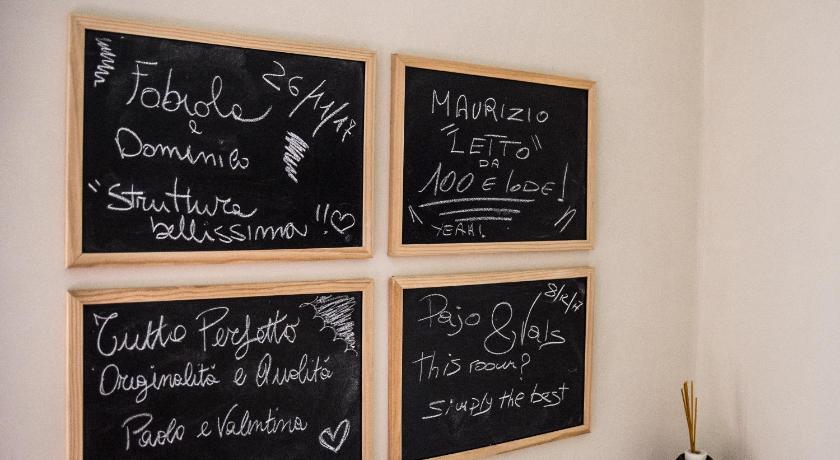 Fabiola 26/11/17
e
Domenico
"Struttura
bellissima !!
MAURIZIO
"LETTO"
DA
100 E LODE!
YEAH!
Tutto Perfetto
Originalità e Qualità
Paolo e Valentina
8/12/17
Pajo & Vals
This room?
simply the best